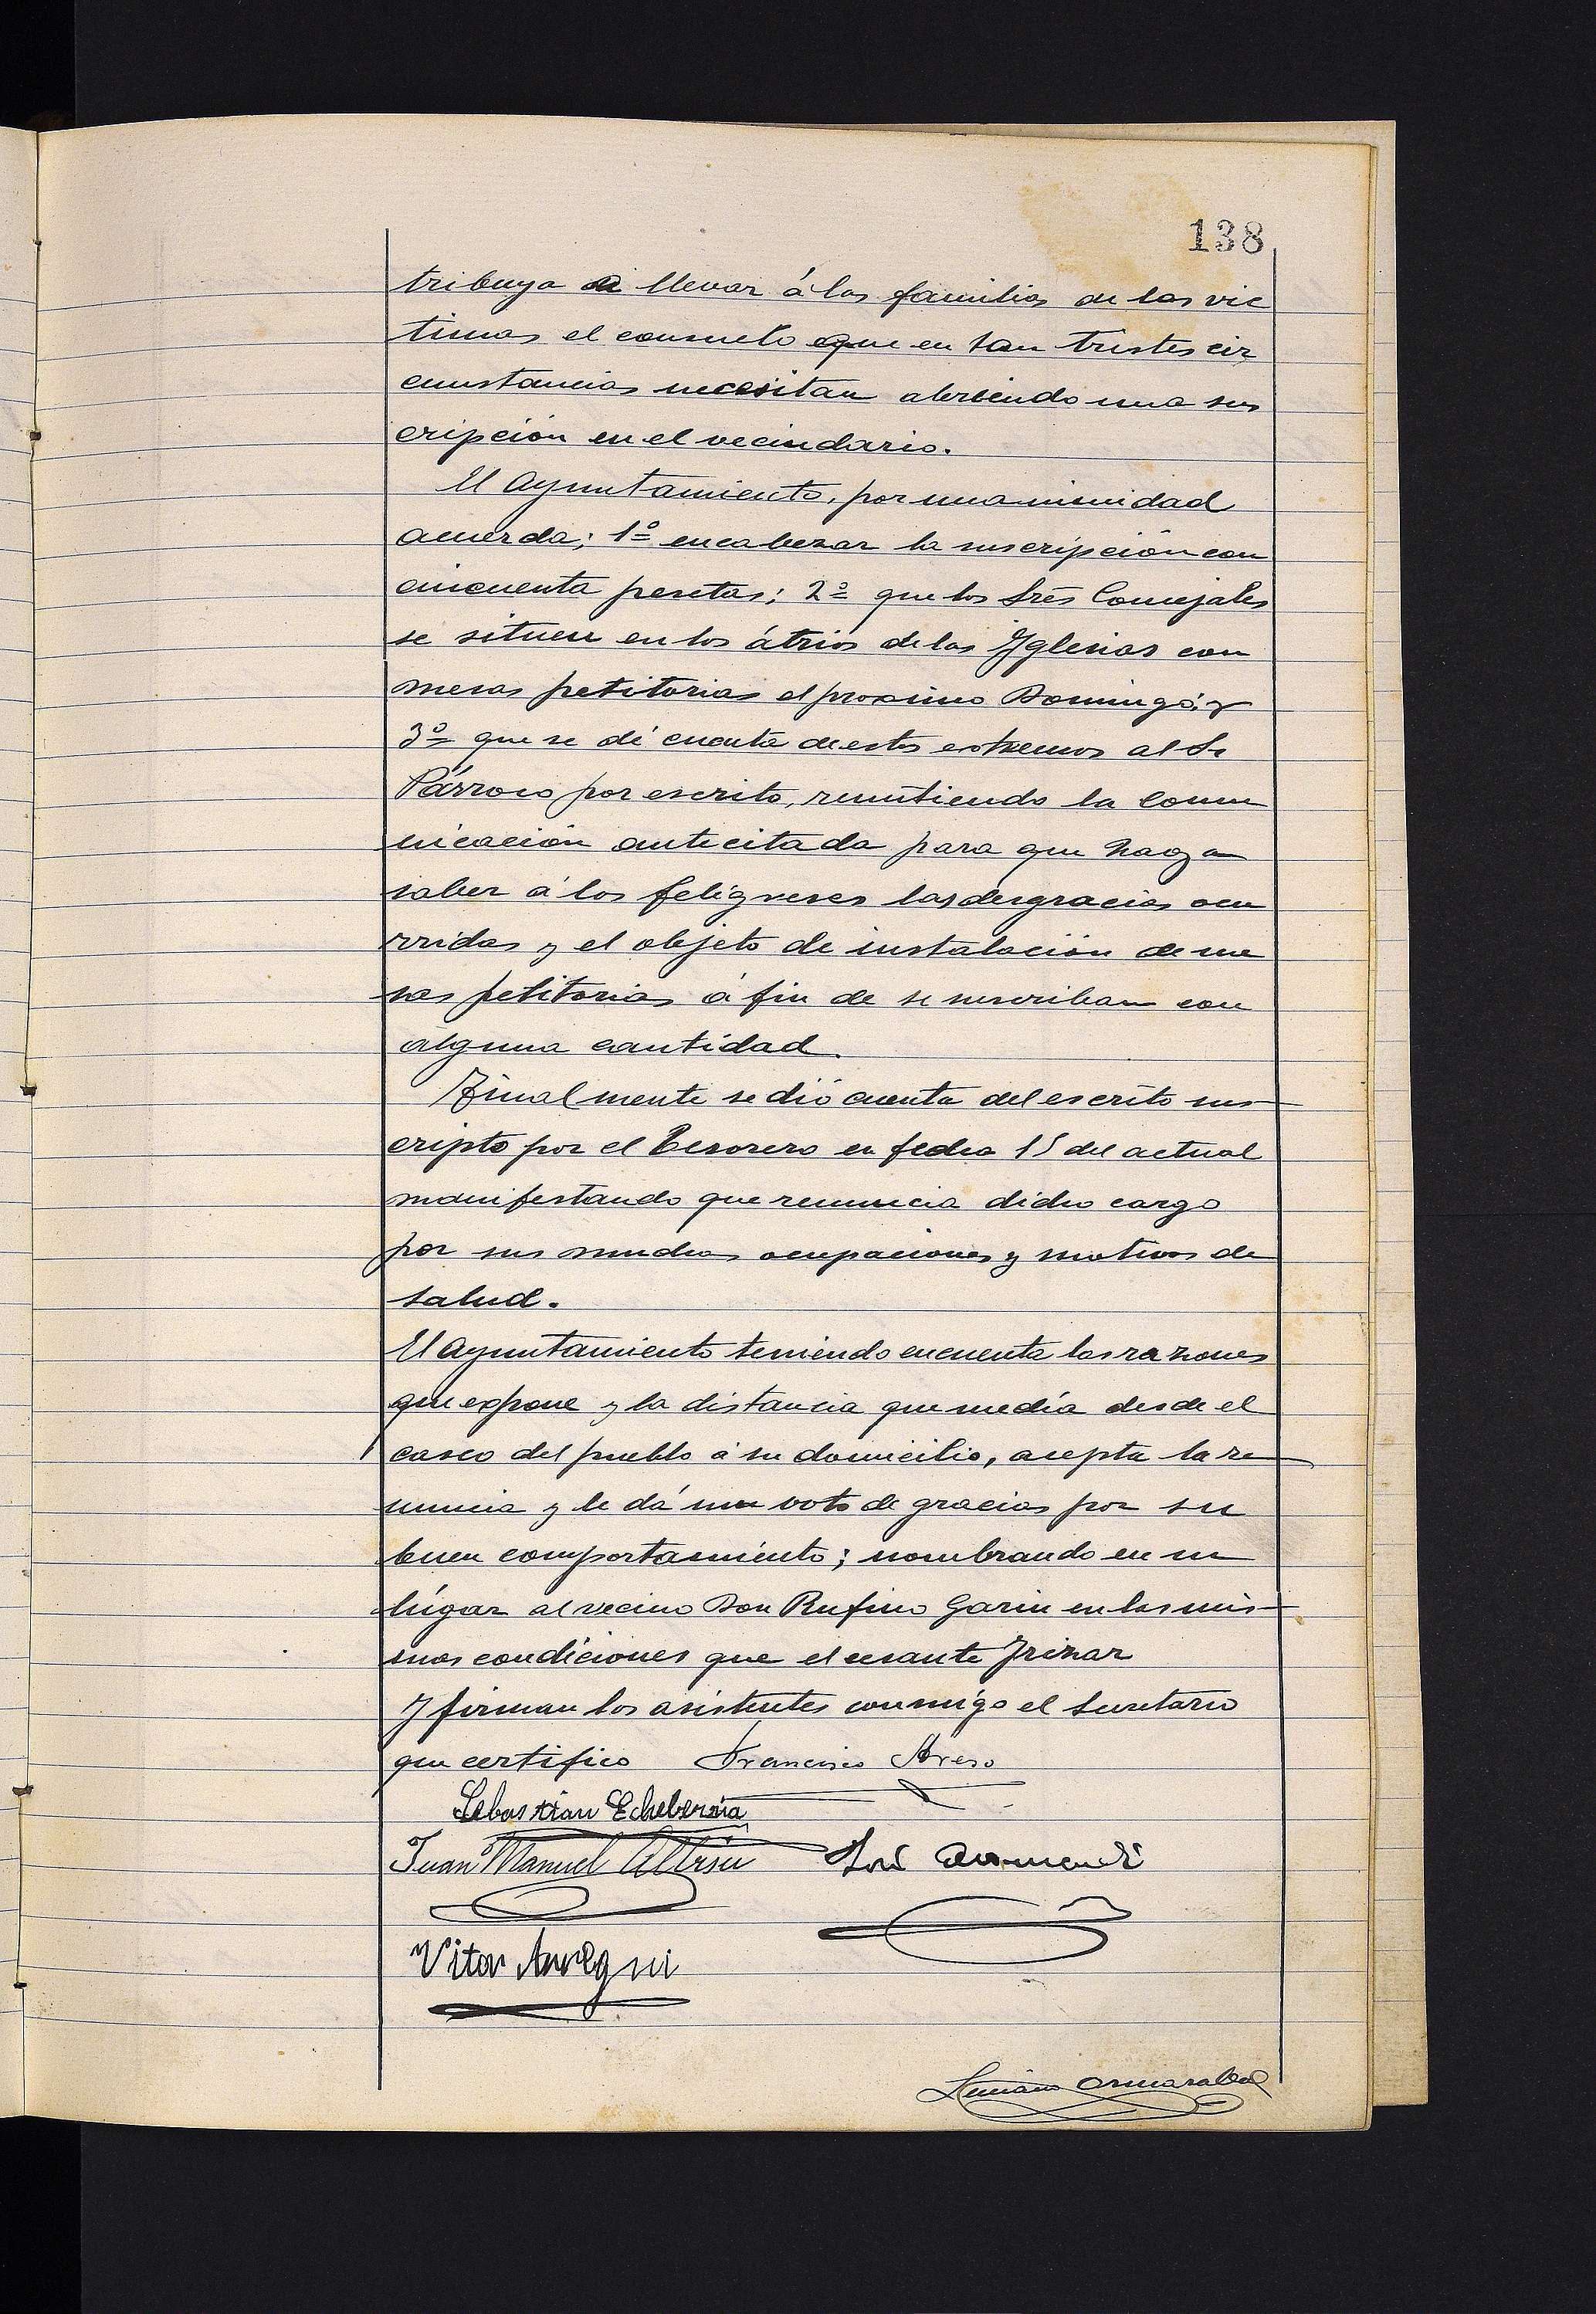 138
tribuya a llevar á las familias de las vic
timas el consuelo que en tan tristes cir
cunstancias necesitan abriendo una sus
cripción en el vecindario.
El Ayuntamiento, por unanimidad
acuerda; 1º encabezar la suscripción con
cincuenta pesetas; 2º que los Sres Concejales
se situen en los átrios de las Yglesias con
mesas petitorias el proximo Domingo; y
3º que se dé cuenta de estos estremos al Sr
Párroco por escrito, remitiendo la comu
nicación antecitada para que haga
saber á los feligreses las desgracias ocu
rridas y el objeto de instalación de me
sas petitorias á fin de se suscriban con
alguna cantidad.
Finalmente se dió cuenta del escrito sus
cripto por el Tesorero en fecha 15 del actual
manifestando que renuncia dicho cargo
por sus muchas ocupaciones y motivos de
salud.
El Ayuntamiento teniendo encuenta las razones
que expone y la distancia que media desde el
casco del pueblo á su domicilio, acepta la re
nuncia y le dá un voto de gracias por su
buen comportamiento; nombrando en su
lúgar al vecino Don Rufino Garin en las mis
mas condiciones que el cesante Yrizar
Y firman los asistentes conmigo el Secretario
que certifico Francisco Areso
Sebastian Echeberria
Juan Manuel José
Vitor